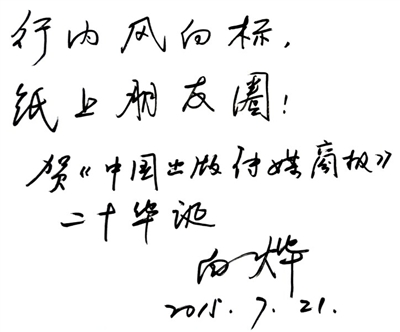 行内风向标，
纸上朋友圈！
贺《中国出版传媒商报》
二十华诞
白烨
2015.7.21.